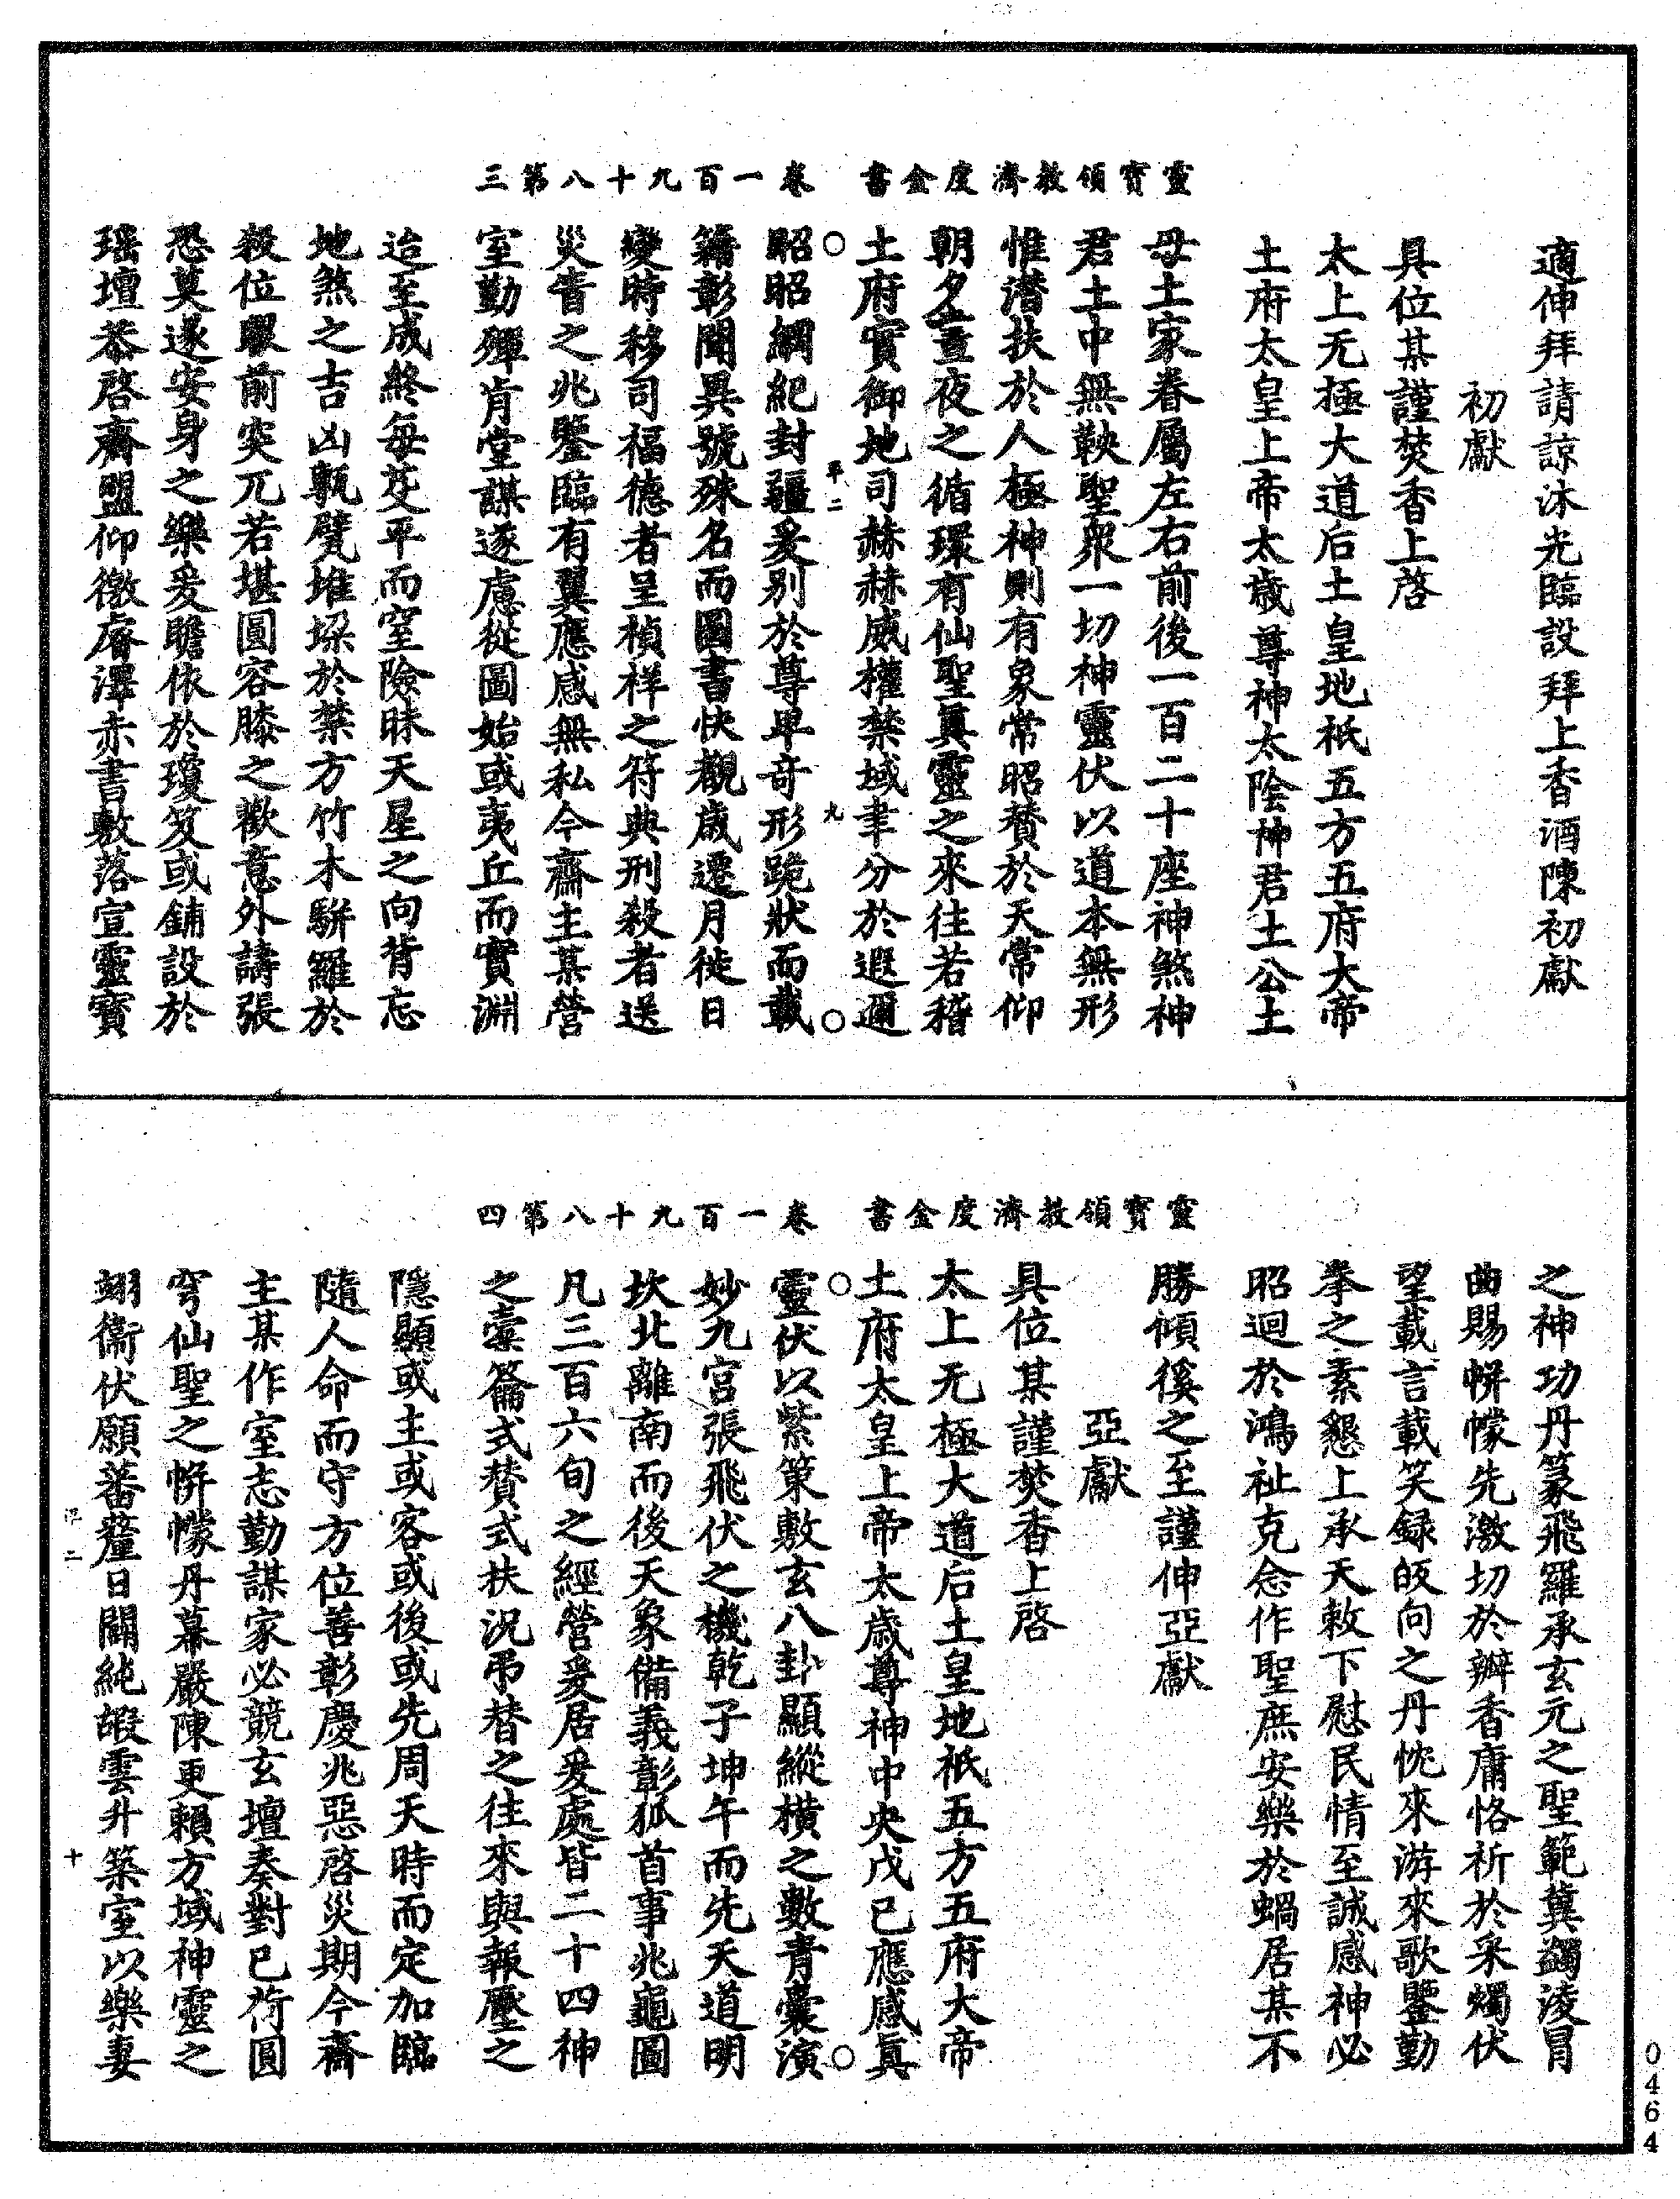 靈寶領教濟度金書 卷一百九十八第三
適伸拜請諒沐光臨設拜上香酒陳初獻
初獻
具位某謹焚香上啓
太上无極大道后土皇地祇五方五府大帝
土府太皇上帝太歲尊神太陰神君土公土
母土家眷屬左右前後一百二十座神煞神
君土中無鞅聖衆一切神靈伏以道本無形
惟潜扶於人極神則有象常昭賛於天常仰
朝夕晝夜之循環有仙聖眞靈之來往若稽
土府實御地司赫赫威權禁域聿分於遐邇
昭昭綱紀封疆爰别於尊卑竒形跪狀而載
籍彰聞異號殊名而圖書快觀歲遷月徙日
變時移司福德者呈楨祥之符典刑殺者送
災眚之兆鑒臨有翼應感無私今齋主某營
室勤殫肯堂謀遂慮從圖始或夷丘而實淵
迨至成終每芟平而窒險昧天星之向背忘
地煞之吉凶甎甓堆垜於禁方竹木駢羅於
殺位眼前突兀若堪圓容膝之歡意外譸張
恐莫遂安身之樂爰瞻依於瓊笈或鋪設於
瑶壇恭啓齋盟仰徼睿澤赤書敷落宣靈寶
平二 九
靈寶領教濟度金書 卷一百九十八第四
之神功丹篆飛羅承玄元之聖範冀蠲淩冒
曲賜帡幪先激切於瓣香庸恪祈於采蠋伏
望載言載笑録皈向之丹忱來游來歌鑒勤
拳之素懇上承天敕下慰民情至誠感神必
昭迴於鴻祉克念作聖庶安樂於蝸居某不
勝傾徯之至謹伸亞獻
亞獻
具位某謹焚香上啓
太上无極大道后土皇地祇五方五府大帝
土府太皇上帝太歲尊神中央戊已應感眞
靈伏以紫策敷玄八卦顯縱橫之數青囊演
妙九宫張飛伏之機乾子坤午而先天道明
坎北離南而後天象備義彰狐首事兆龜圖
凡三百六旬之經營爰居爰處皆二十四神
之槖籥式賛式扶况吊替之往來與報壓之
隱顯或主或客或後或先周天時而定加臨
隨人命而守方位善彰慶兆惡啓災期今齋
主某作室志勤謀家必競玄壇奏對已荷圓
穹仙聖之帡幪丹幕嚴陳更賴方域神靈之
翊衛伏願蕃釐日闢純嘏雲升築室以樂妻
平二 十
0464